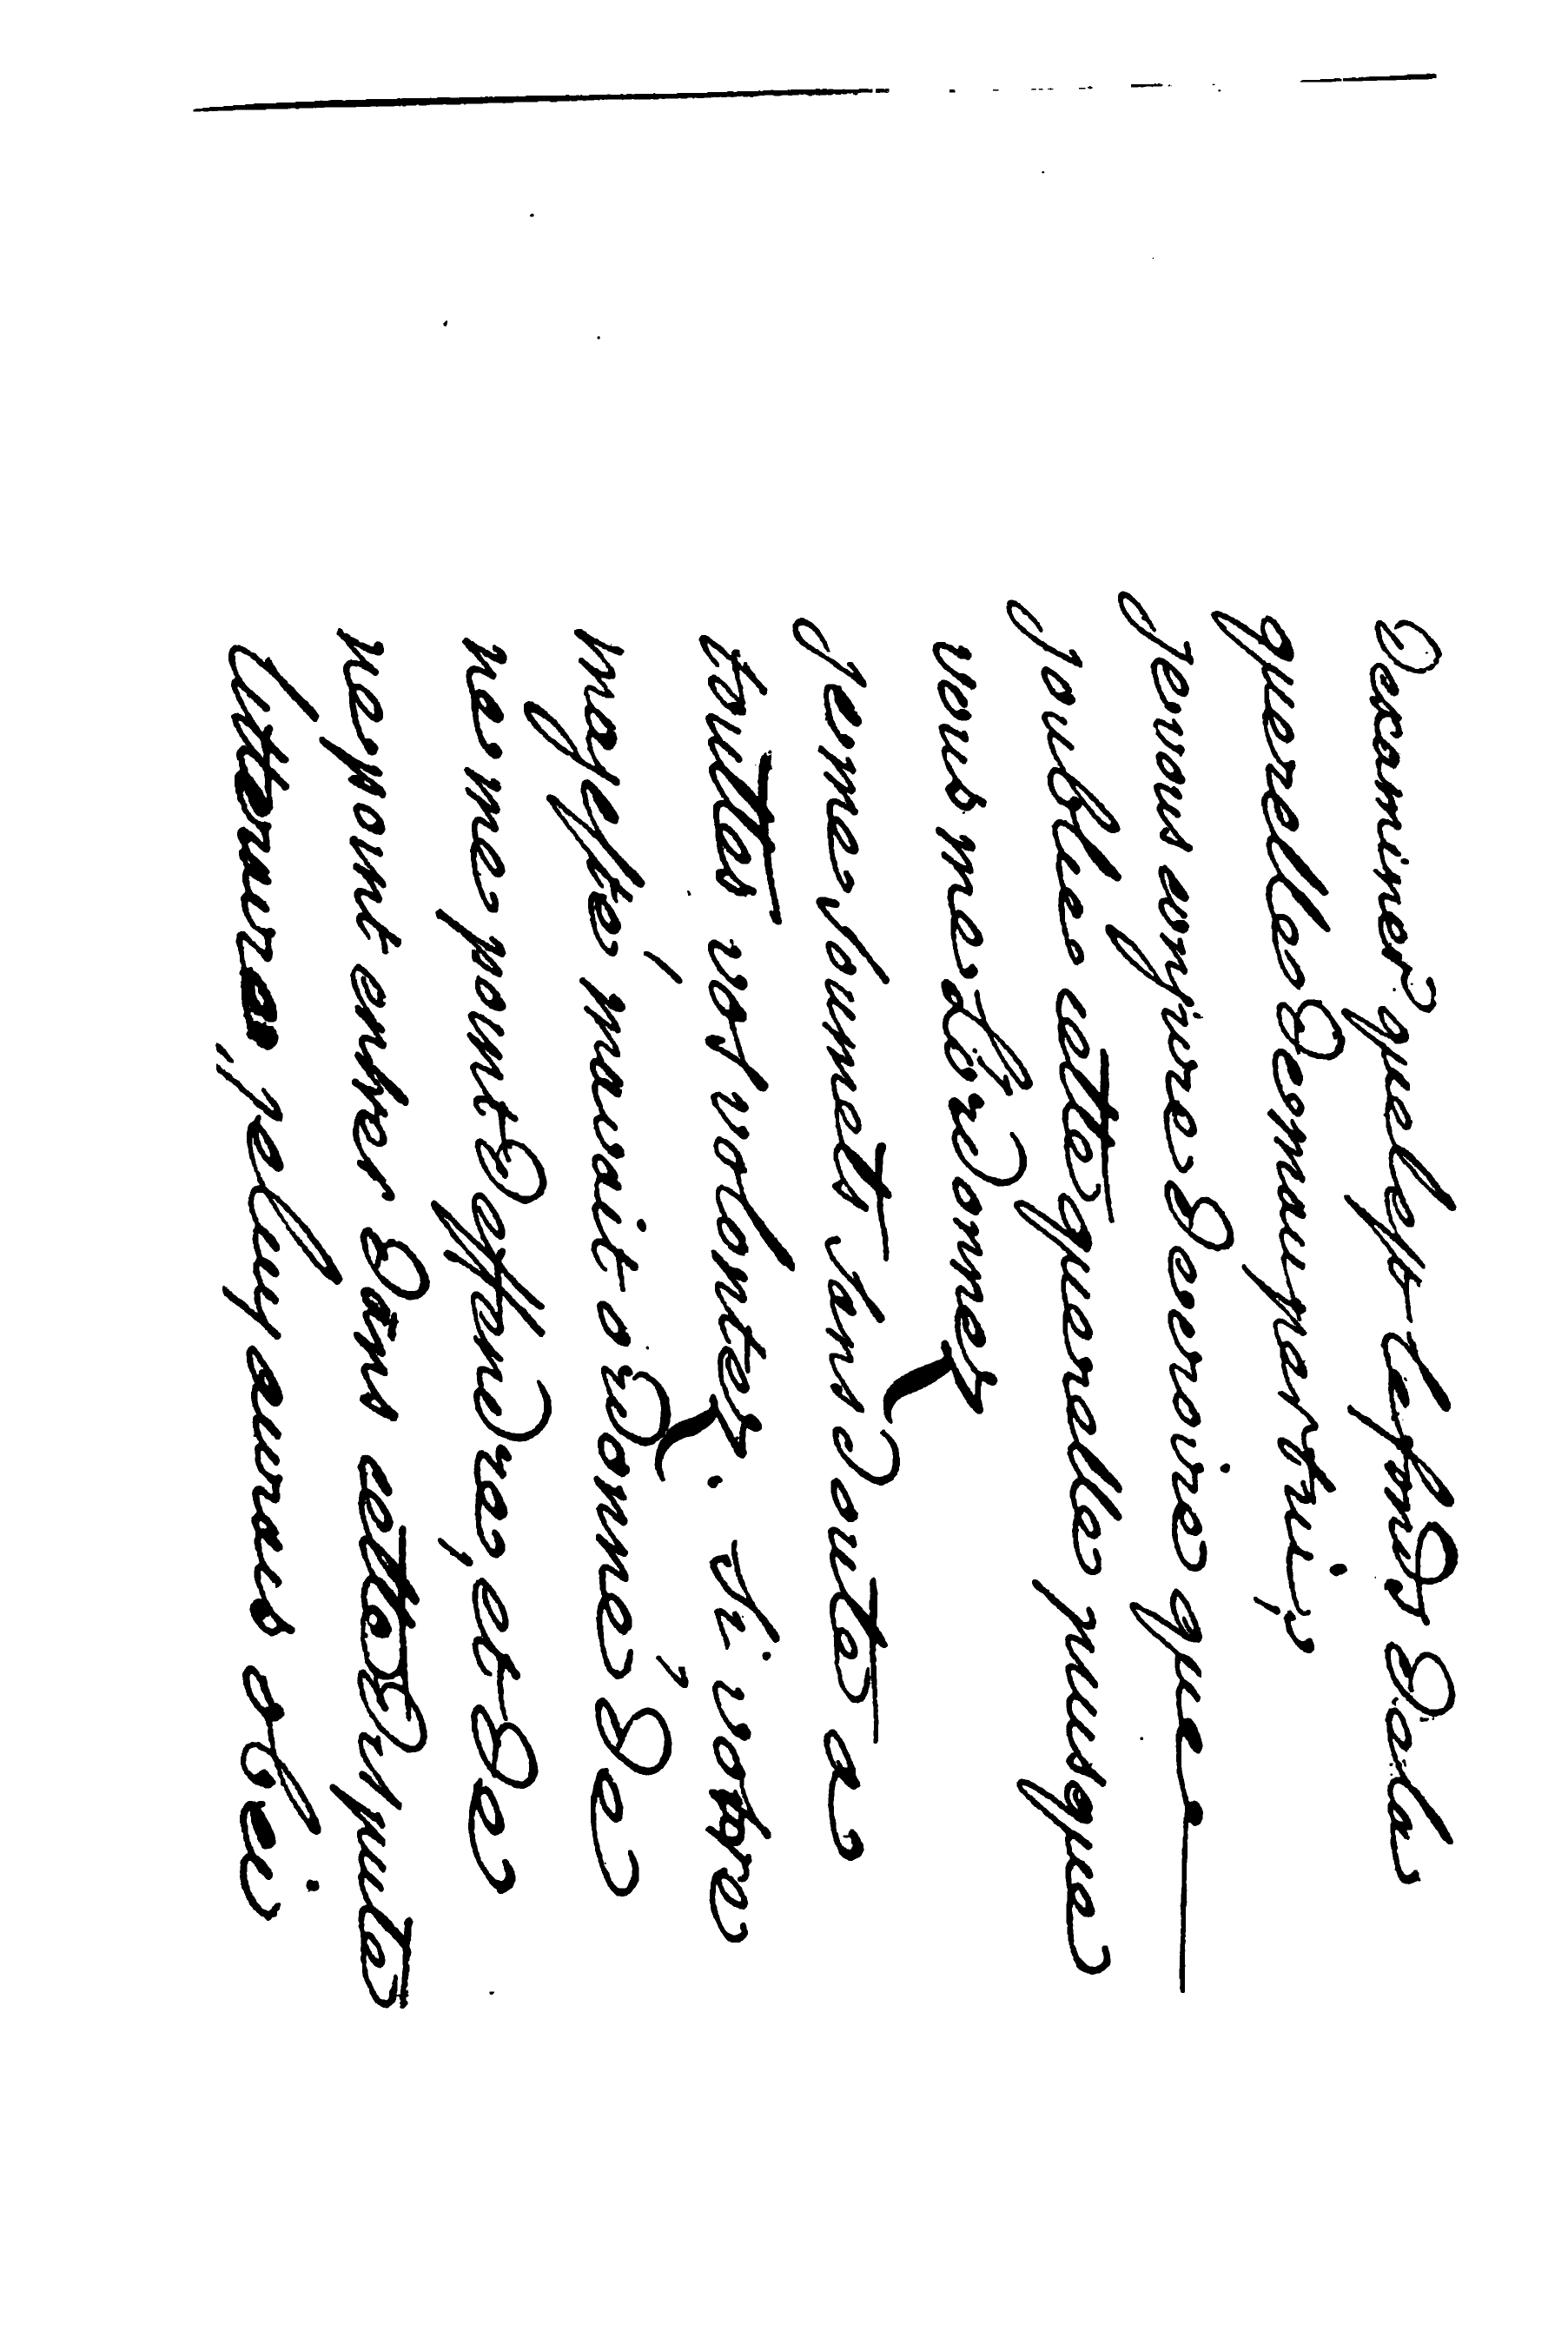 Dexaminer quelest lefond dela
querelle demaupertuis,
jevous conjure decroire que
joublie cette querelle puisque
vous me lordonnez
je me soumets sans doute a
touttes vos volontez. Si votre
majesté mavait ordonné de
ne me point deffendre, et de
ne point entrer dans cette dispute
litteraire, je luy aurais obéi